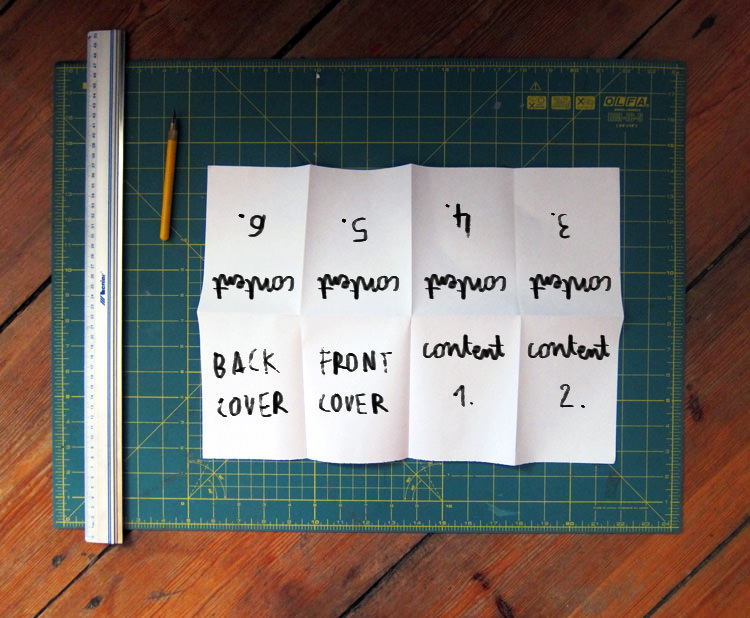 OLFA
content
6.
content
5.
content
4.
content
3.
BACK
COVER
FRONT
COVER
content
1.
content
2.